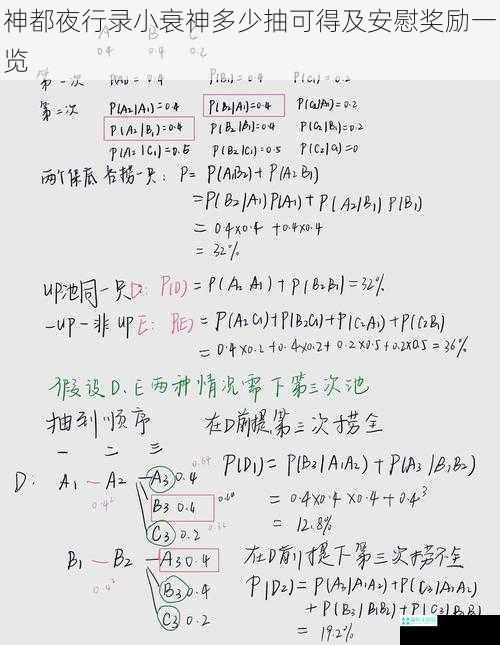 神都夜行录小衰神多少抽可得及安慰奖励一
览
A B C
0.4 0.4 0.2
第一次 P(A1)=0.4 P(B1)=0.4 P(C1)=0.2
第二次 P(A2|A1)=0.4 P(B2|A1)=0.4 P(C2|A1)=0.2
P(A2|B1)=0.4 P(B2|B1)=0.4 P(C2|B1)=0.2
P(A2|C1)=0.5 P(B2|C1)=0.5 P(C2|C1)=0
两个保底各捞一只: P= P(A1B2)+P(A2B1)
=P(B2|A1)P(A1)+P(A2|B1)P(B1)
= 0.4x0.4 +0.4x0.4
= 32%
UP池同一只D: P(D)=P(A2A1)+P(B2B1)=32%
一UP一非UP E: P(E)=P(A2C1)+P(B2C1)+P(C2A1)+P(C2B1)
= 0.4x0.2+0.4x0.2+0.2x0.5+0.2x0.5=36%
假设D、E两种情况需下第三次池
抽到顺序 在D前提第三次捞全
一 二 三
D: A1 — A2 — A3 0.4 P(D1)=P(B3|A1A2)+P(A3|B1B2)
0.4²
B3 0.4 = 0.4x0.4x0.4+0.4³
C3 0.2 = 12.8%
B1 — B2 — A3 0.4 在D前提下第三次捞不全
0.4²
B3 0.4 P(D2)=P(A3|A1A2)+P(C3|A1A2)
C3 0.2 +P(B3|B1B2)+P(C3|B1B2)
= 19.2%